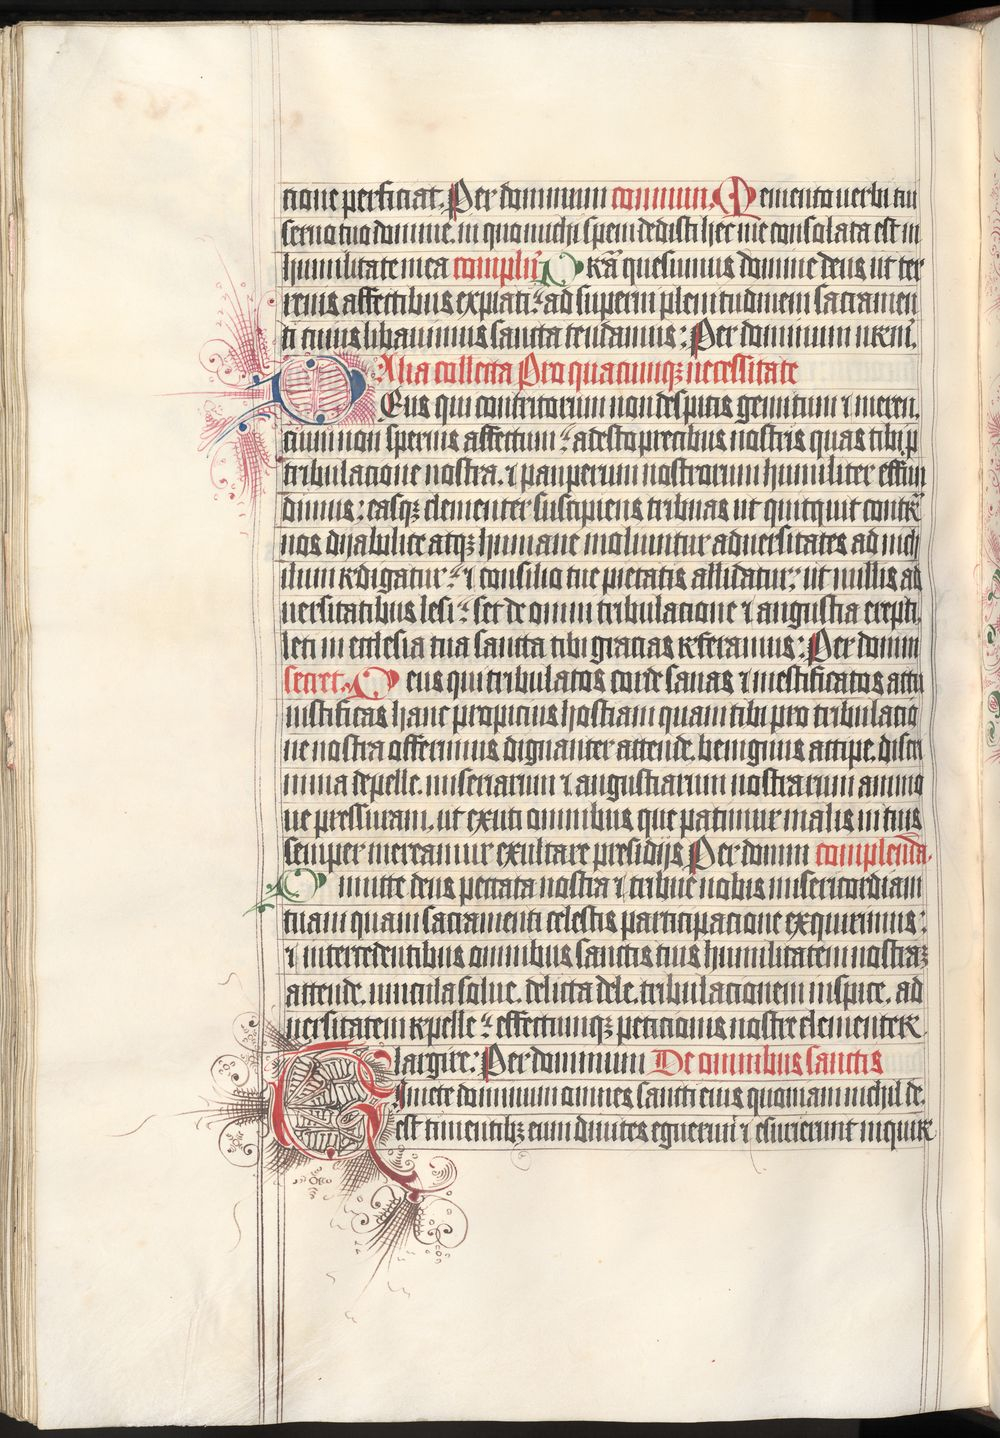 cione perficiat. Per dominum commun. Memento verbi tui
seruo tuo domine. in quo michi spem dedisti hec me consolata est in
humilitate mea complen̄ Orā quesumus domine deus ut ter
renis affectibus expiati: ad superni plenitudinem sacramen
ti cuius libauimus sancta tendamus: Per dominum nr̄m.
Alia collecta Pro quacumqꝫ necessitate
DEus qui contritorum non despicis gemitum ⁊ meren.
cium non spernis affectum: adesto precibus nostris quas tibi p̄
tribulacione nostra. ⁊ pauperum nostrorum humiliter effun
dimus: easqꝫ clementer suscipiens tribuas ut quitquit contr̄
nos dyabolice atqꝫ humane moliuntur aduersitates ad nich
ilum redigatur: ⁊ consilio tue pietatis allidatur: ut nullis ad
uersitatibus lesi: set de omni tribulacione ⁊ angustia erepti.
leti in ecclesia tua sancta tibi gracias referamus: Per domin
secret. Deus qui tribulatos corde sanas ⁊ mestificatos actu
iustificas hanc propicius hostiam quam tibi pro tribulacio
ne nostra offerimus dignanter attende. benignus accipe. discri
mina depelle. miseriarum ⁊ angustiarum nostrarum ammo
ue pressuram. ut exuti omnibus que patimur malis in tuis
semper mereamur exultare presidijs Per domin complenda.
Dimitte deus peccata nostra ⁊ tribue nobis misericordiam
tuam quam sacramenti celestis participacione exquirimus:
⁊ intercedentibus omnibus sanctis tuis humilitatem nostraꝫ
attende. uincula solue. delicta dele. tribulacionem inspice. ad
uersitatem repelle: effectumqꝫ peticionis nostre clementer
largire: Per dominum De omnibus sanctis
Timete dominum omnes sancti eius quoniam nichil de.
est timentibꝫ eum diuites eguerunt ⁊ esurierunt inquir̄